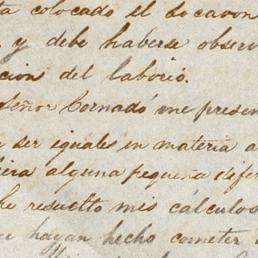 ta colocado el socavon
y debe haberse observ
cion del laborió.
Señor Cornadó me presen
ser iguales en materia a
iera alguna pequeña difer
he resuelto mis cálculos
hayan hecho cometer